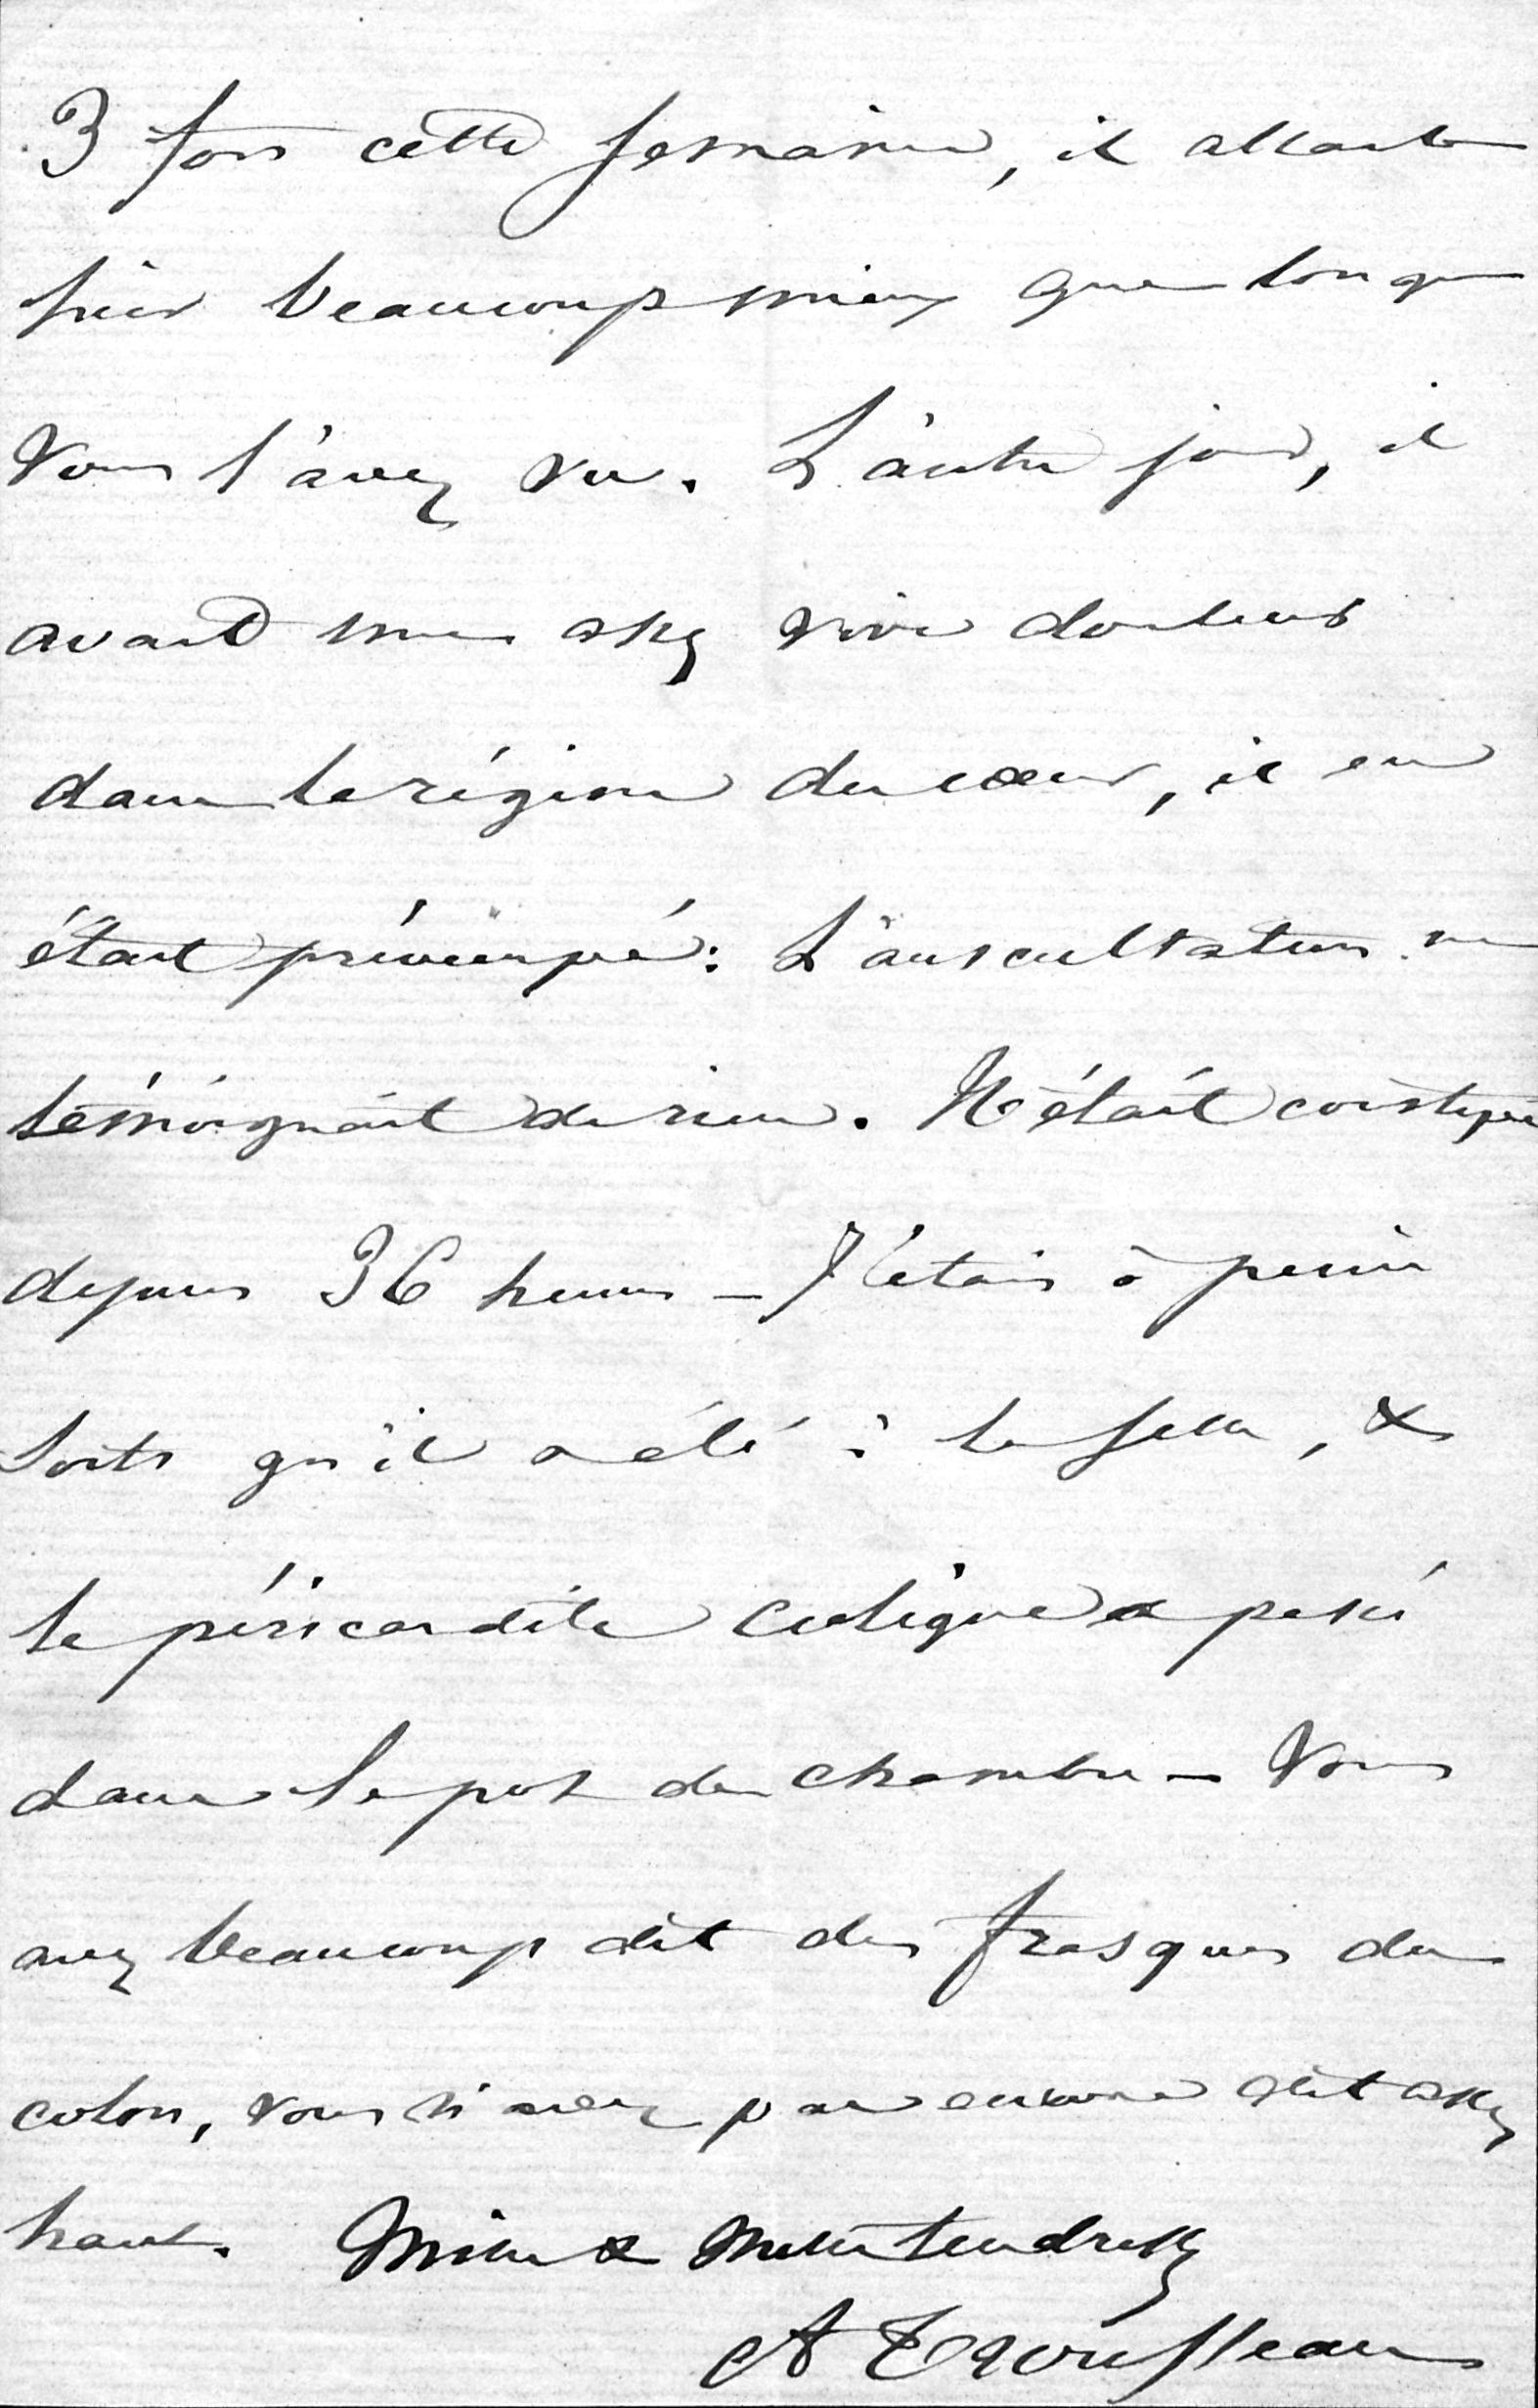 3 fois cette semaine, il allait
hier beaucoup mieux que lorsque
vous l'avez vu. L'autre jour, il
avait une assez vive douleur
dans la région du cœur, il en
était préoccupé: L'auscultation ne
témoignait de rien. Il était constipé
depuis 36 heures – J'étais à peine
sorti qu'il a été à la selle, &
la péricardite colique a passé
dans le pot de chambre – Vous
avez beaucoup dit des frasques du
colon, vous n'avez pas encore dit assez
haut. Mille & mille tendresses
A Trousseau